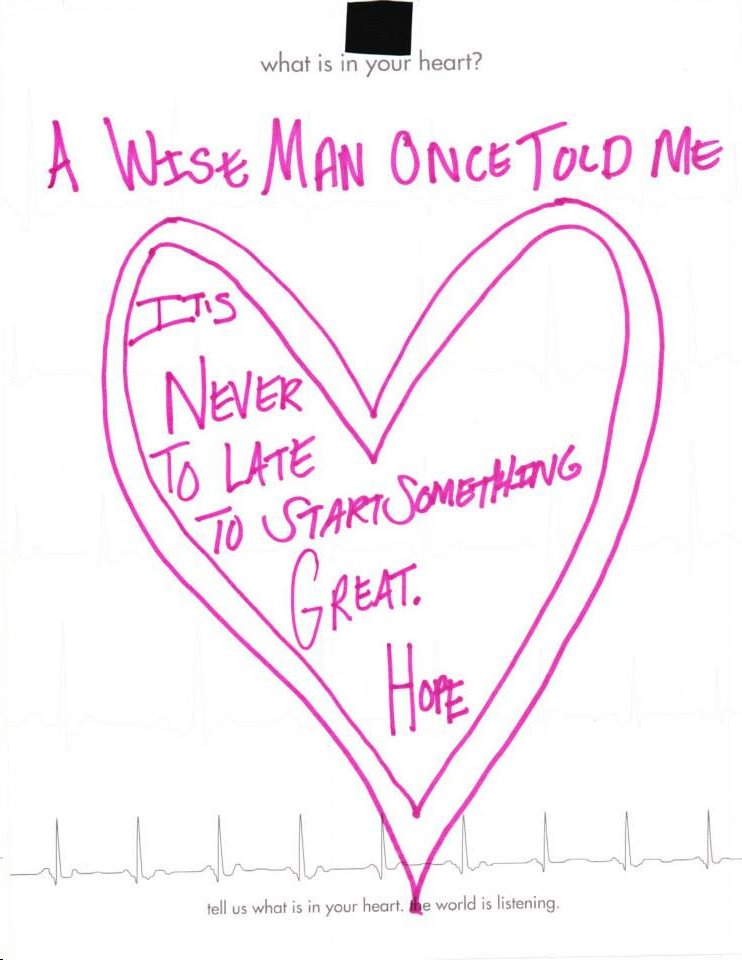 what is in your heart?
A WISE MAN ONCE TOLD ME
IT'S
NEVER
TO LATE
TO START SOMETHING
GREAT.
HOPE
tell us what is in your heart. the world is listening.